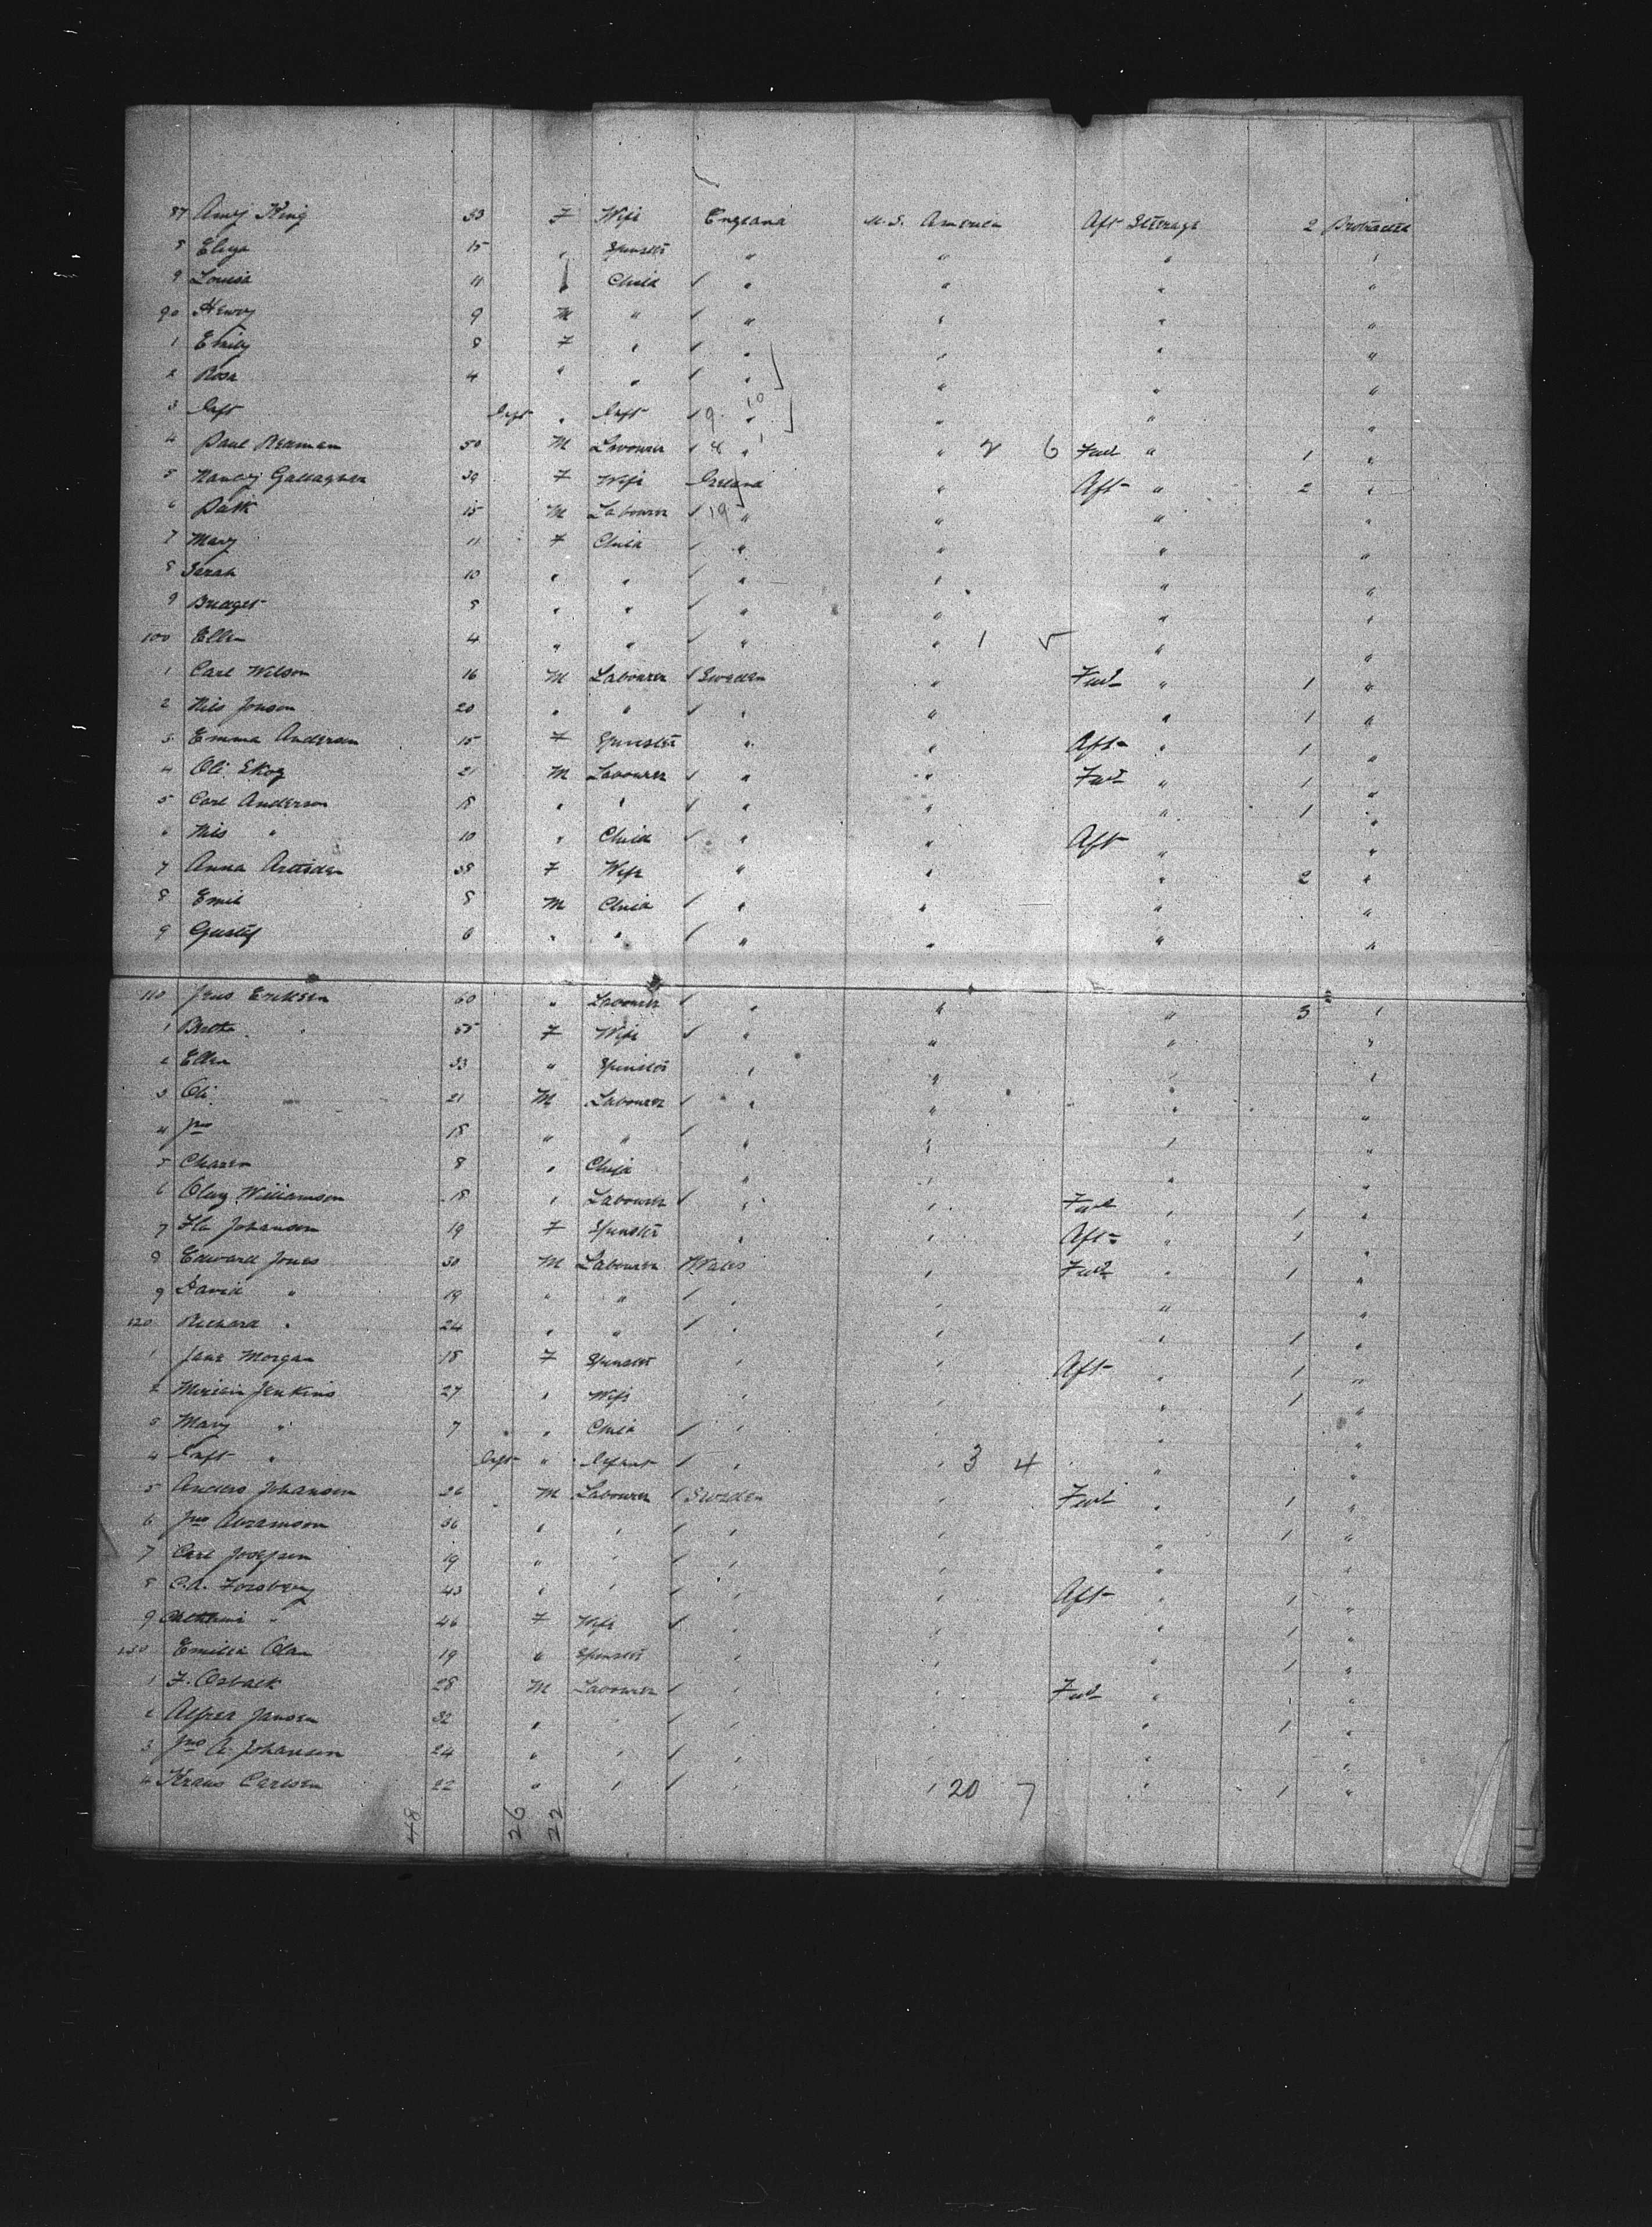 87 Amy King 33 F Wife England U.S. America Aft Steerage 2 Protracted
8 Eliza 15 " Spinster " " " "
9 Louisa 11 Child " " " "
90 Henry 9 M " " " " "
1 Emily 8 F " " " " "
2 Rosa 4 " " " " " "
3 Inft Inft " Inft 9 10 " " " "
4 Paul 50 M Labourer " " 2 6 Fwd " 1 "
5 Nancy Gallagher 39 F Wife Ireland " Aft " 2 "
6 Patk 15 M Labourer 19 " " " "
7 Mary 11 F Child " " " "
8 Sarah 10 " " " " " "
9 Bridget 8 " " " " " "
100 Ellen 4 " " " " 1 5 " "
1 Carl Wilson 16 M Labourer Sweden " Fwd " 1 "
2 Nils Jonson 20 " " " " " 1 "
3 Emma Anderson 15 F Spinster " " Aft " 1 "
4 Ole Skog 21 M Labourer " " Fwd " 1 "
5 Carl Anderson 18 " " " " " 1 "
6 Nils " 10 " Child " " Aft " "
7 Anna 38 F Wife " " " 2 "
8 Emil 8 M Child " " " "
9 Gustaf 6 " " " " " "
110 Jens Eriksen 60 " Labourer " " " 3 "
1 Bertha 55 F Wife " " " "
2 Ellen 33 " Spinster " " " "
3 Ole 21 M Labourer " " " "
4 Jno 18 " " " " " "
5 8 " Child " " " "
6 Williamson 18 " Labourer " " Fwd " 1 "
7 Johansen 19 F Spinster " " Aft " 1 "
8 Edward Jones 30 M Labourer Wales " Fwd " 1 "
9 David " 19 " " " " " "
120 Richard " 24 " " " " " 1 "
1 Jane Morgan 18 F Spinster " " Aft " 1 "
2 Miriam Jenkins 27 " Wife " " " 1 "
3 Mary " 7 " Child " " " "
4 Inft " Inft " Infant " " 3 4 " "
5 Anders Johansen 26 M Labourer Sweden " Fwd " 1 "
6 Jno Abramson 36 " " " " " 1 "
7 Carl Josefsen 19 " " " " " "
8 C.A. Forsberg 43 " " " " Aft " 1 "
9 " 46 F Wife " " " 1 "
130 Emilia 19 " Spinster " " " 1 "
1 F. Osback 28 M Labourer " " Fwd " 1 "
2 Alfred Jansen 32 " " " " " 1 "
3 Jno A. Johansen 24 " " " " " "
4 Carlsen 22 " " " " 20 7 " 1 "
48 26 22